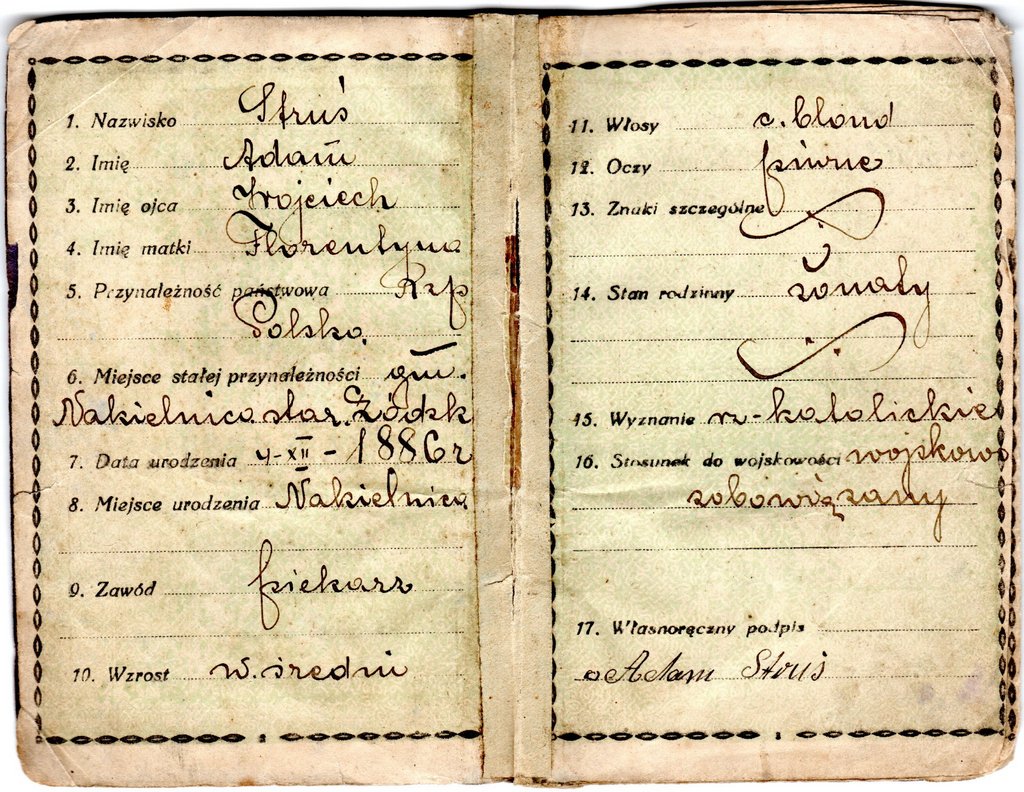 1. Nazwisko Struś
2. Imię Adam
3. Imię ojca Wojciech
4. Imię matki Florentyna
5. Przynależność państwowa Rzp
Polska.
6. Miejsce stałej przynależności gm.
Nakielnica star. Łódzk
7. Data urodzenia 4-XII-1886 r
8. Miejsce urodzenia Nakielnica
9. Zawód piekarz
10. Wzrost w. średni
11. Włosy c. blond
12. Oczy piwne
13. Znaki szczególne
14. Stan rodzinny żonaty
15. Wyznanie rz-katolickie
16. Stosunek do wojskowości wojskowo
zobowiązany
17. Własnoręczny podpis
Adam Struś